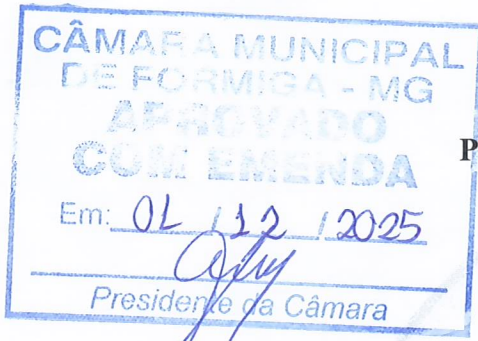 CÂMARA MUNICIPAL
DE FORMIGA - MG
APROVADO
COM EMENDA
P
Em: 01 / 12 / 2025
Presidente da Câmara